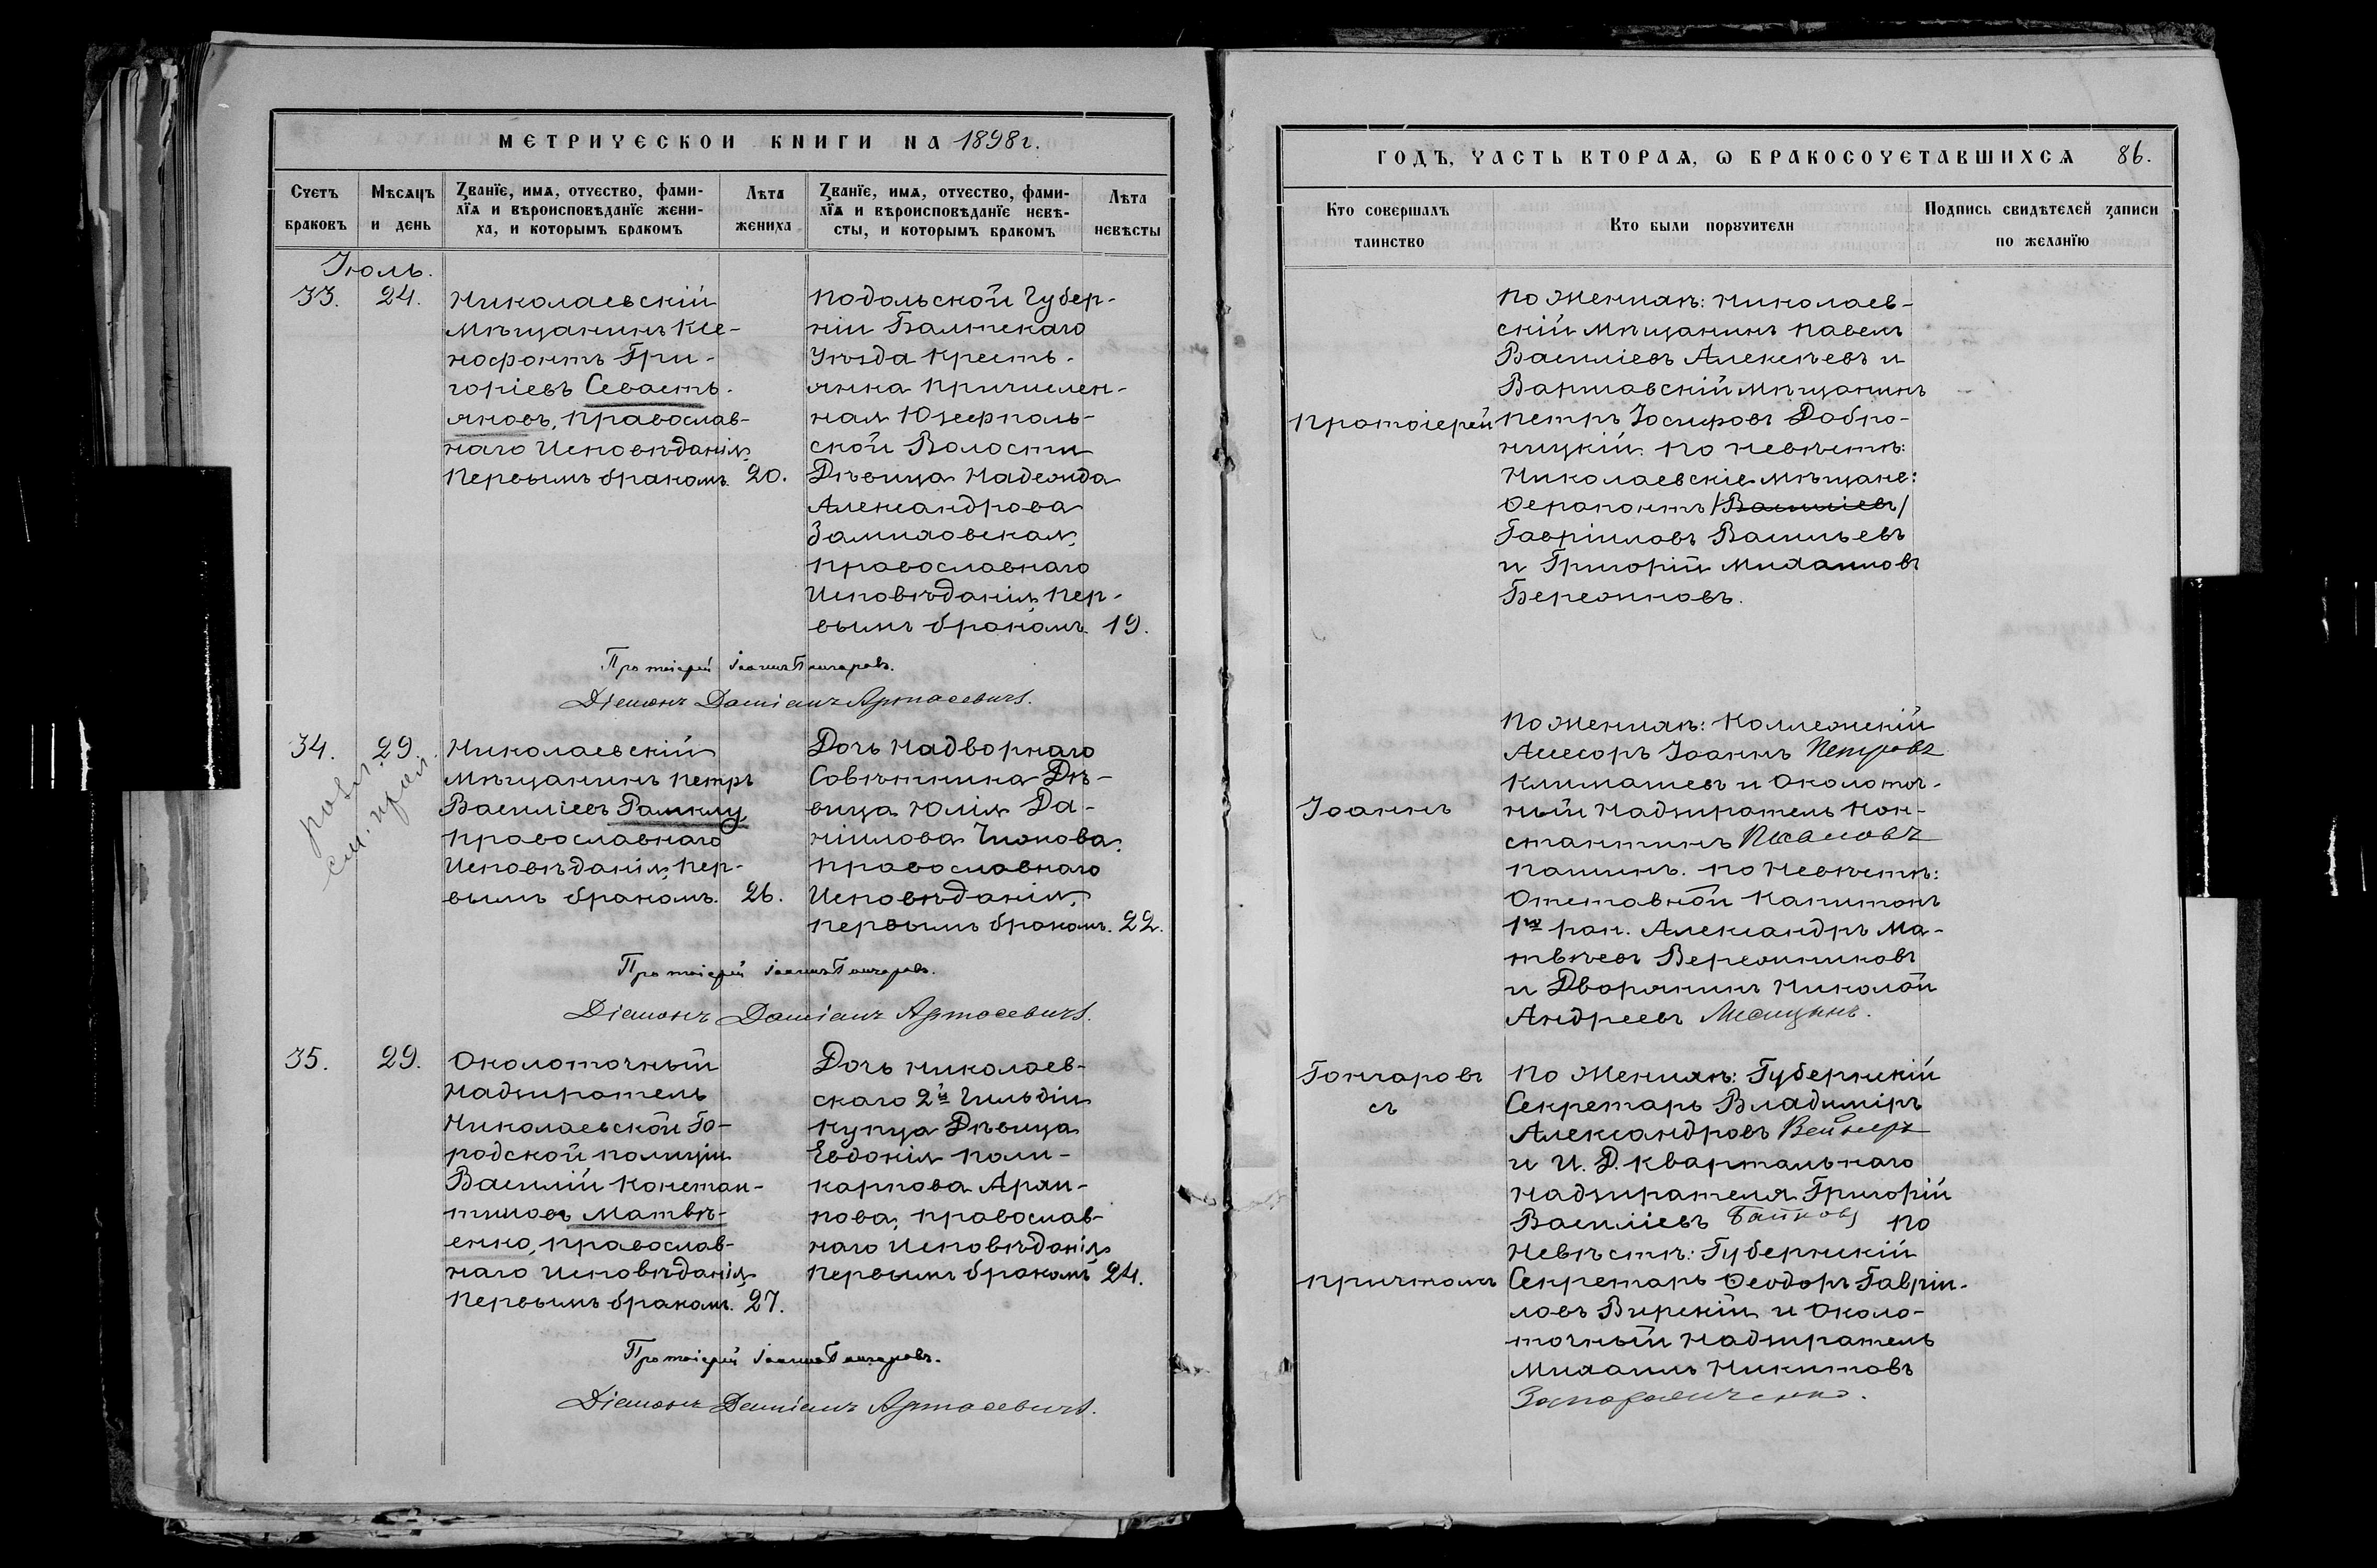 МЕТРИЧЕСКОЙ КНИГИ НА 1898 г.
Счетъ браковъ
Мѣсяцъ и день
Званїе, имѧ, отчество, фами-
лїѧ и вѣроисповѣданїе жени-
ха, и которымъ бракомъ
Лѣта жениха
Званїе, имѧ, отчество, фами-
лїѧ и вѣроисповѣданїе невѣ-
сты, и которымъ бракомъ
Лѣта невѣсты
Іюль.
33.
24.
Николаевскій
Мѣщанинъ Ксе-
нофонтъ Гри-
горіевъ Севасть-
яновъ, православ-
наго Исповѣданія,
первымъ бракомъ.
20.
Подольской Губер-
ніи Балтскаго
Уѣзда Кресть-
янка причислен-
ная Юзефполь-
ской Волости
Дѣвица Надежда
Александрова
Замиховская,
православнаго
Исповѣданія, пер-
вымъ бракомъ.
19.
Протоіерей Іоаннъ Гончаровъ.
Діаконъ Даміанъ Артасевичъ.
34.
29.
Николаевскій
Мѣщанинъ Петръ
Василіевъ
православнаго
Исповѣданія, пер-
вымъ бракомъ.
26.
Дочь Надворнаго
Совѣтника Дѣ-
вица Юлія Да-
ніилова Чижова,
православнаго
Исповѣданія,
первымъ бракомъ.
22.
Протоіерей Іоаннъ Гончаровъ.
Діаконъ Даміанъ Артасевичъ.
35.
29.
Околоточный
Надзиратель
Николаевской Го-
родской полиціи
Василій Констан-
тиновъ Матвѣ-
енко, православ-
наго Исповѣданія,
первымъ бракомъ.
27.
Дочь Николаев-
скаго 2й Гильдіи
Купца Дѣвица
Евдокія Поли-
карпова Аряп-
нова, православ-
наго Исповѣданія
первымъ бракомъ
24.
Протоіерей Іоаннъ Гончаровъ.
Діаконъ Даміанъ Артасевичъ.
ГОДЪ, ЧАСТЬ ВТОРАѦ, Ѡ БРАКОСОЧЕТАВШИХСѦ
86.
Кто совершалъ
таинство
Кто были порꙋчители
Подпись свидѣтелей записи
по желанїю
Протоіерей
Іоаннъ
Гончаровъ
съ
причтомъ
По Женихѣ: Николаев-
скій Мѣщанинъ Павелъ
Василіевъ Алексѣевъ и
Варшавскій Мѣщанинъ
Петръ Іосифовъ Добро-
ницкій. По Невѣстѣ:
Николаевскіе Мѣщане:
Ѳерапонтъ /Василіевъ/
Гавріиловъ Васильевъ
и Григорій Михаиловъ
Бережновъ.
По Женихѣ: Коллежскій
Ассесоръ Іоаннъ Петровъ
Климашевъ и Околоточ-
ный Надзиратель Кон-
стантинъ
Пашинъ. По Невѣстѣ:
Отставной Капитанъ
1го ран. Александръ Ма-
твѣевъ
и Дворянинъ Николай
Андреевъ Лисицынъ.
По Женихѣ: Губернскій
Секретарь Владиміръ
Александровъ Вейнеръ
и И. Д. Квартальнаго
Надзирателя Григорій
Василіевъ По
Невѣстѣ: Губернскій
Секретарь Ѳеодоръ Гаврiи-
ловъ Вирскій и Около-
точный Надзиратель
Михаилъ Никитовъ
Запорожченко.